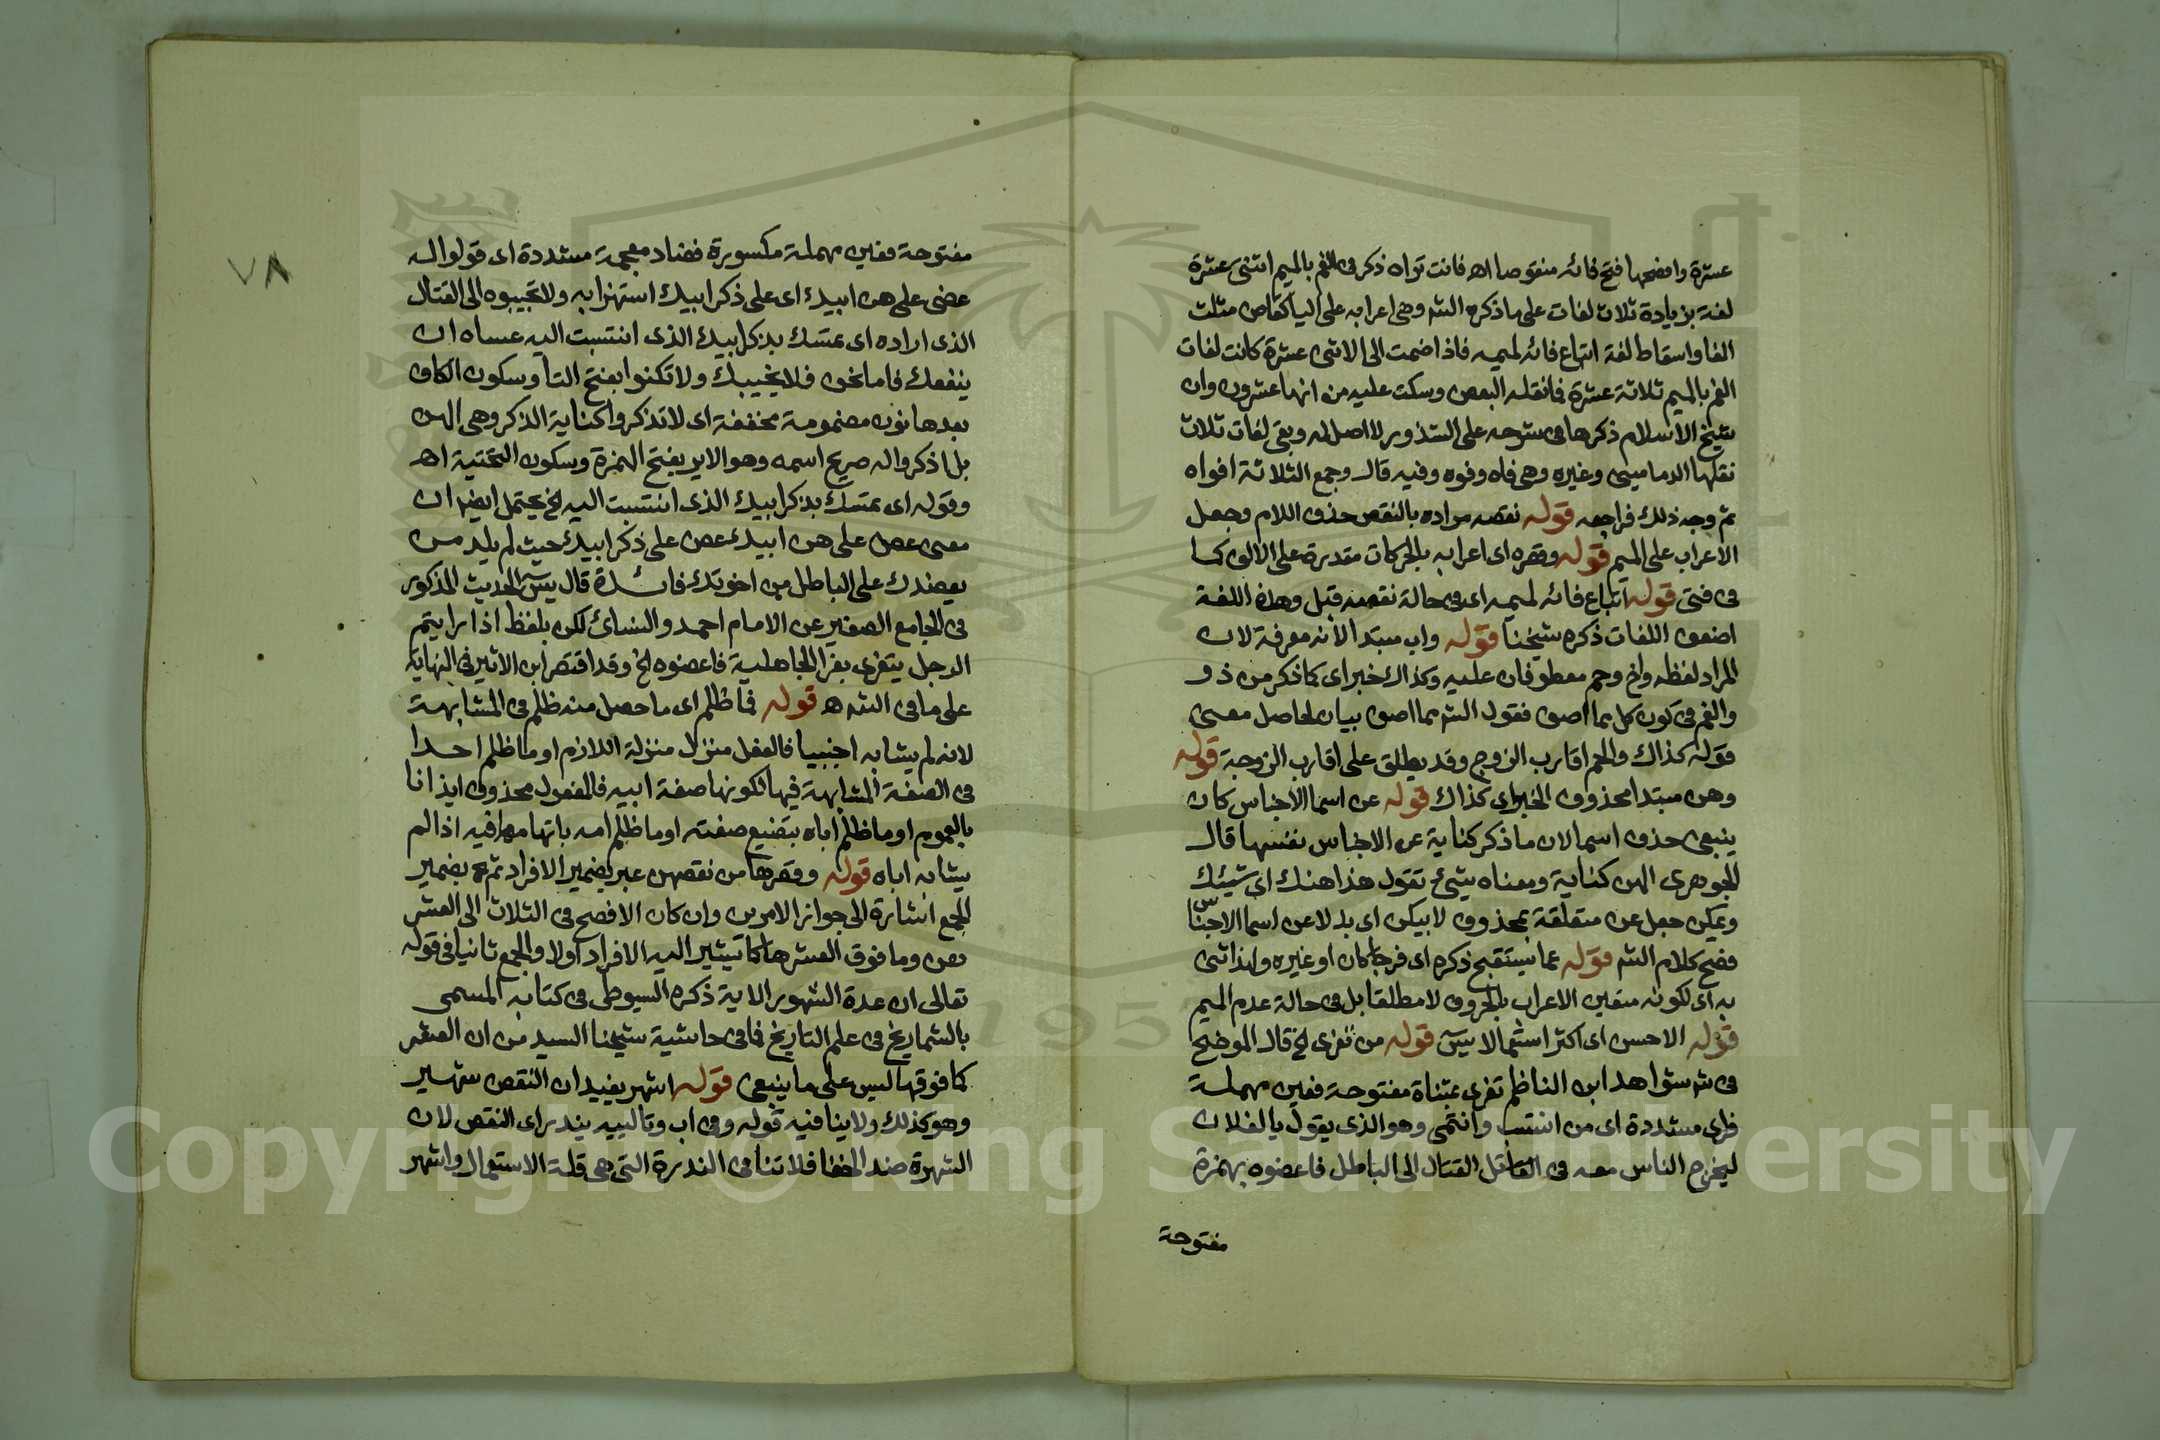 عشرة وافصحها فتح فائه منقوصا اه فانت تراه ذكر في الفم بالميم اثنتى عشرة
لغة بزيادة ثلاث لغات على ما ذكره الشـ وهى اعرابه على اليا كقاض مثلث
الفا واسقاط لغة اتباع فائه لميمه فاذا ضمت الى الاثنى عشرة كانت لغات
الفم بالميم ثلاثة عشرة فانقله البعض وسكت عليه من انها عشرون وان
شيخ الاسلام ذكرها فى شرحه على الشذور لا اصل له وبقى لغات ثلاث
نقلها الدمامينى وغيره وهى فاه وفوه وفيه قال وجمع الثلاثة افواه
ثم وجه ذلك فراجعه قوله نقصه مراده بالنقص حذف اللام وجعل
الاعراب على الميم قوله وقصره اى اعرابه بالحركات مقدرة على الالف كما
فى فتى قوله اتباع فائه لميمه اى فى حالة نقصه قبل وهذه اللغة
اضعف اللغات ذكره شيخنا قوله واب مبتدا لانه معرفة لان
المراد لفظه واخ وحم معطوفان عليه وكذاك خبر اى كما ذكر من ذو
والفم فى كون كل بما اصف فقول الشـ مما اصف بيان لحاصل معنى
قوله كذاك والحم اقارب الزوج وقد يطلق على اقارب الزوجة قوله
وهن مبتدا محذوف الخبر اى كذاك قوله عن اسما الاجناس كان
ينبغى حذف اسما لان ما ذكر كناية عن الاجناس نفسها قال
الجوهرى الهن كناية ومعناه شئ تقول هذا هنك اى شيئك
ويمكن جعل عن متعلقة بمحذوف لا بيكنى اى بدلا عن اسما الاجناس
فصح كلام الشـ قوله عما يستقبح ذكره اى فرجا كان او غيره ولهذا ثنى
به اى لكونه متعين الاعراب بالحروف لا مطلقا بل فى حالة عدم الميم
قوله الاحسن اى اكثر استعمالا يسٓ قوله من تعزى الخ قال الموضح
فى شـ شواهد ابن الناظم تعزى بمثناة مفتوحة فعين مهملة
فزاى مشددة اى من انتسب وانتمى وهو الذى يقول يا لفلان
ليخرج الناس معه فى القتال الى الباطل فاعضوه بهمزة
مفتوحة
٧٨
مفتوحة فعين مهملة مكسورة فضاد معجمة مشددة اى قولوا له
عض على هن ابيك اى على ذكر ابيك استهزا به ولا تجيبوه الى القتال
الذى اراده اى تمسك بذكر ابيك الذى انتسبت اليه عساه ان
ينفعك فاما نحن فلا نجيبك ولا تكنوا بفتح التا وسكون الكاف
بعدها نون مضمومة مخففة اى لا تذكروا كناية الذكر وهى الهن
بل اذكروا له صريح اسمه وهو الاير بفتح الهمزة وسكون التحتية اه
وقوله اى تمسك بذكر ابيك الذى انتسبت اليه الخ يحتمل ايضا ان
معنى عض على هن ابيك عض على ذكر ابيك حيث لم يلد من
يعضدك على الباطل من اخوتك فائدة قال يسٓ الحديث المذكور
فى الجامع الصغير عن الامام احمد والنسائ لكن بلفظ اذا رايتم
الرجل يتعزى بعزا الجاهلية فاعضوه الخ وقد اقتصر ابن الاثير فى النهاية
على ما فى الشـ اه قوله فما ظلم اى ما حصل منه ظلم فى المشابهة
لانه لم يشابه اجنبيا فالفعل منزل منزلة اللازم او ما ظلم احدا
فى الصفة المشابهة فيها لكونها صفة ابيه فالمفعول محذوف ايذانا
بالعموم او ما ظلم اباه بتضييع صفته او ما ظلم امه باتهامها فيه اذا لم
يشابه اباه قوله وقصرها من نقصهن عبر بضمير الافراد ثم بضمير
الجمع اشارة الى جواز الامرين وان كان الافصح فى الثلاث الى العشر
هن وما فوق العشر ها كما يشير اليه الافراد اولا والجمع ثانيا فى قوله
تعالى ان عدة الشهور الاية ذكره السيوطى فى كتابه المسمى
بالشماريخ فى علم التاريخ فما فى حاشية شيخنا السيد من ان العشر
كما فوقها ليس على ما ينبغى قوله اشهر يفيد ان النقص شهير
وهو كذلك ولا ينافيه قوله وفى اب وتالييه يندر اى النقص لان
الشهرة ضد الخفا فلا تنافى الندرة التى هى قلة الاستعمال واشهر
Copyright © King Saud University
1957